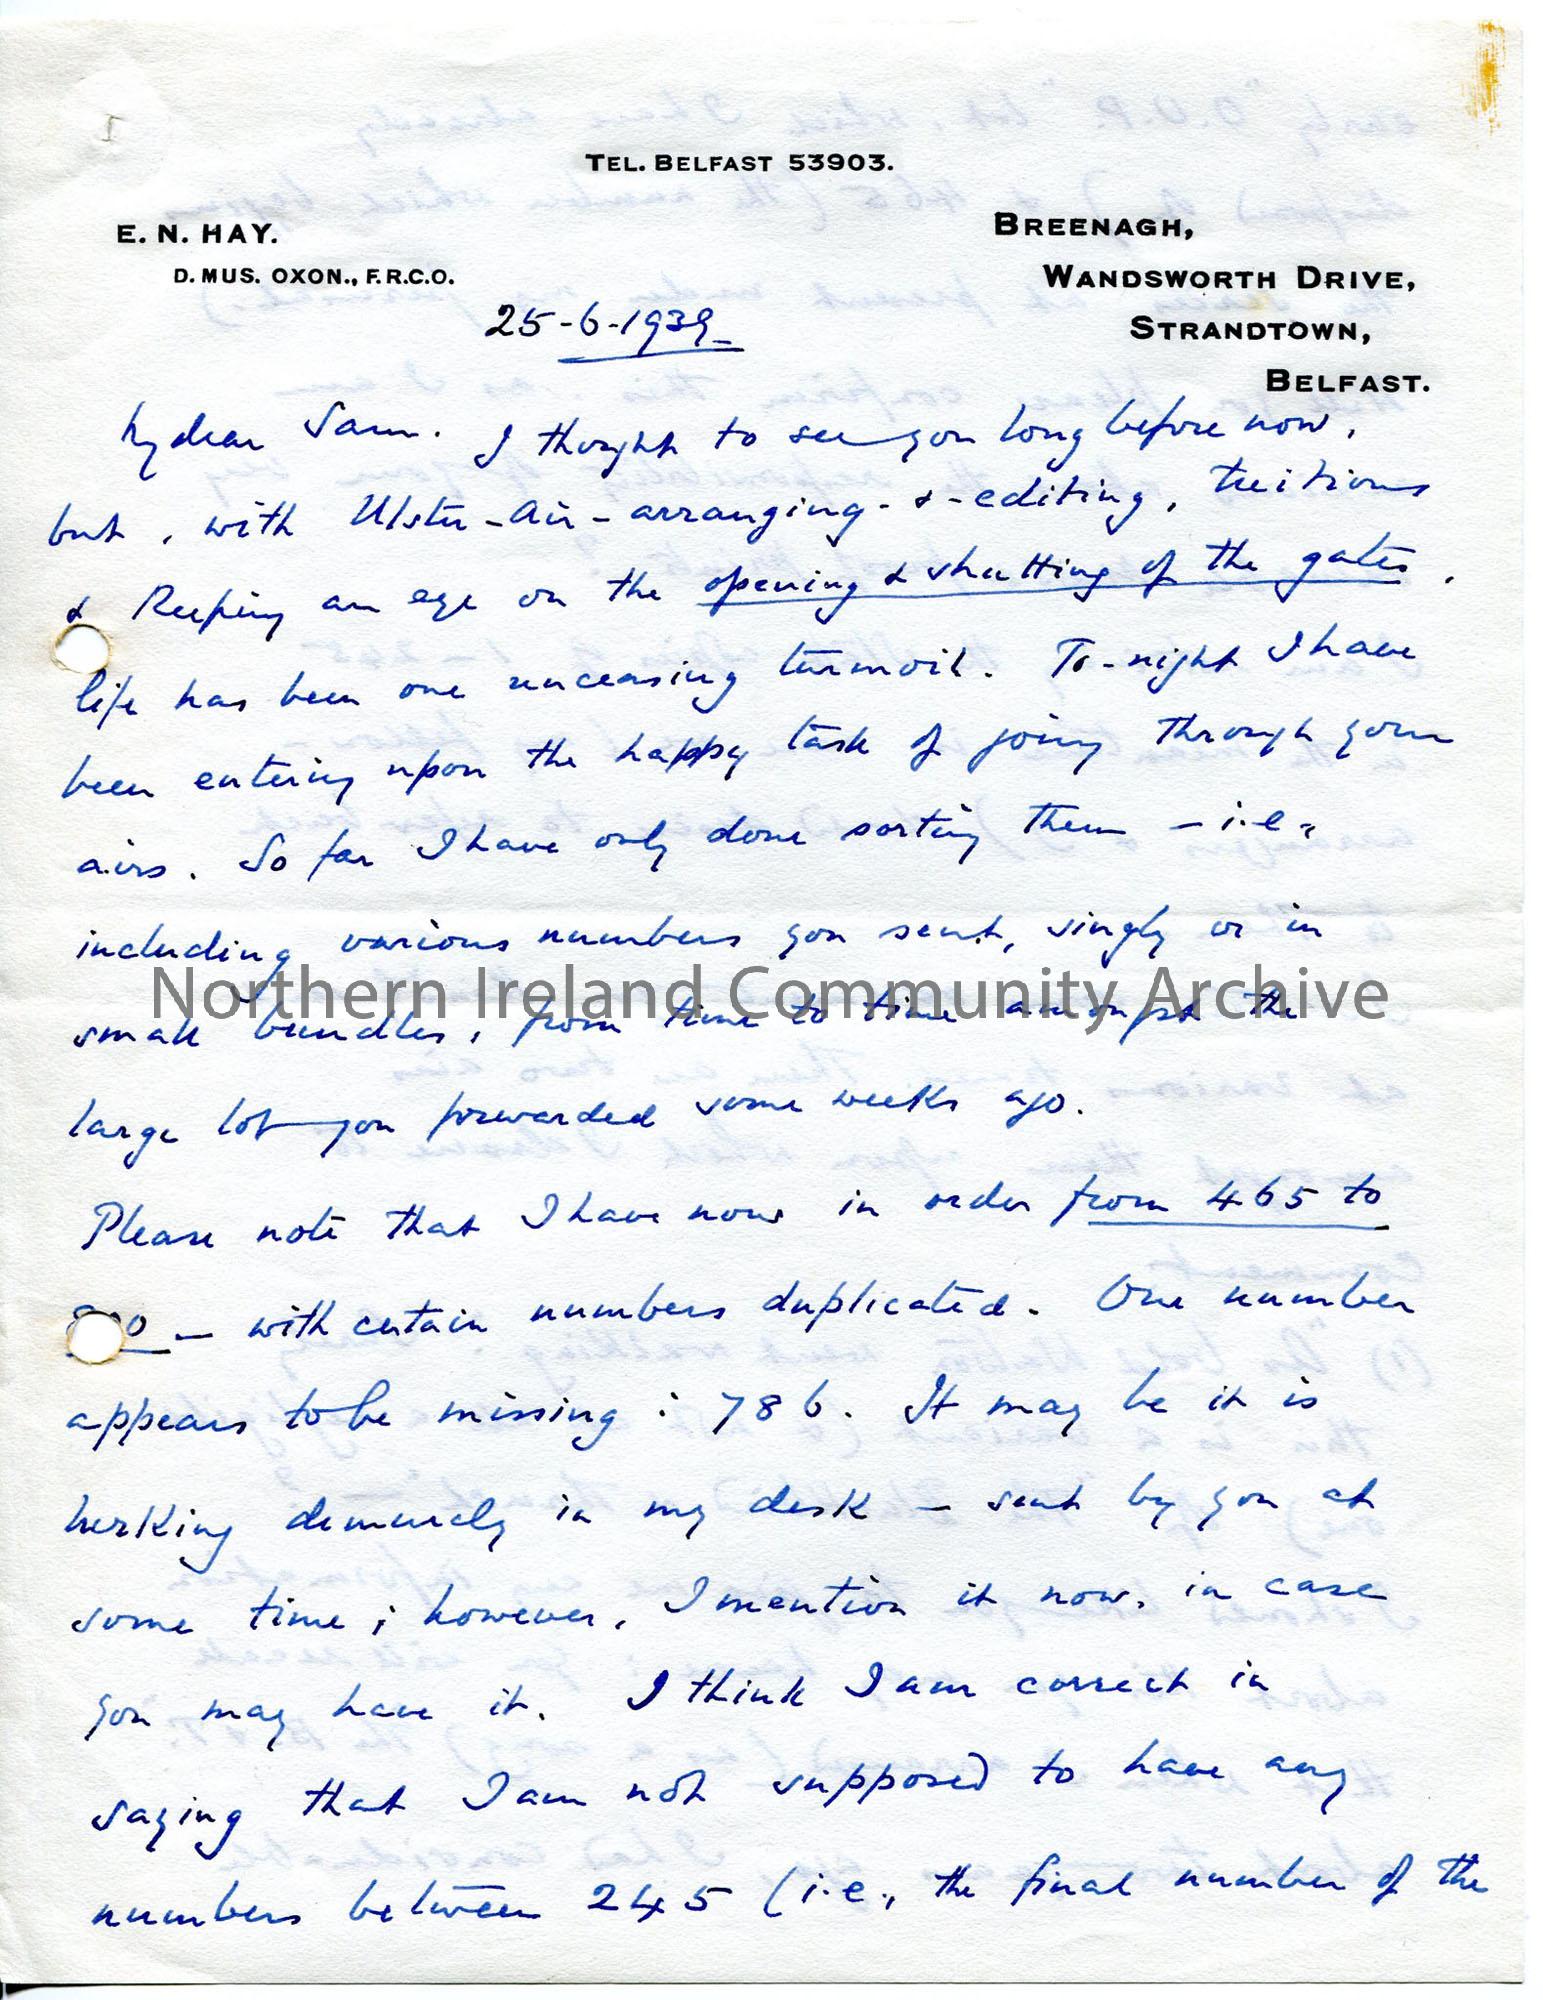 I
TEL. BELFAST 53903.
E. N. HAY.
D. MUS. OXON., F.R.C.O.
BREENAGH,
WANDSWORTH DRIVE,
STRANDTOWN,
BELFAST.
25-6-1939
My dear Sam. I thought to see you long before now,
but, with Ulster-Air-arranging-&-editing, tuitions
& keeping an eye on the opening & shutting of the gates,
life has been one unceasing turmoil. To-night I have
been entering upon the happy task of going through your
airs. So far I have only done sorting them — i.e.,
including various numbers you sent, singly or in
small bundles, from time to time amongst the
large lot you forwarded some weeks ago.
Please note that I have now in order from 465 to
— with certain numbers duplicated. One number
appears to be missing : 786. It may be it is
lurking demurely in my desk — sent by you at
some time ; however, I mention it now, in case
you may have it. I think I am correct in
saying that I am not supposed to have any
numbers between 245 (i.e., the final number of the
Northern Ireland Community Archive